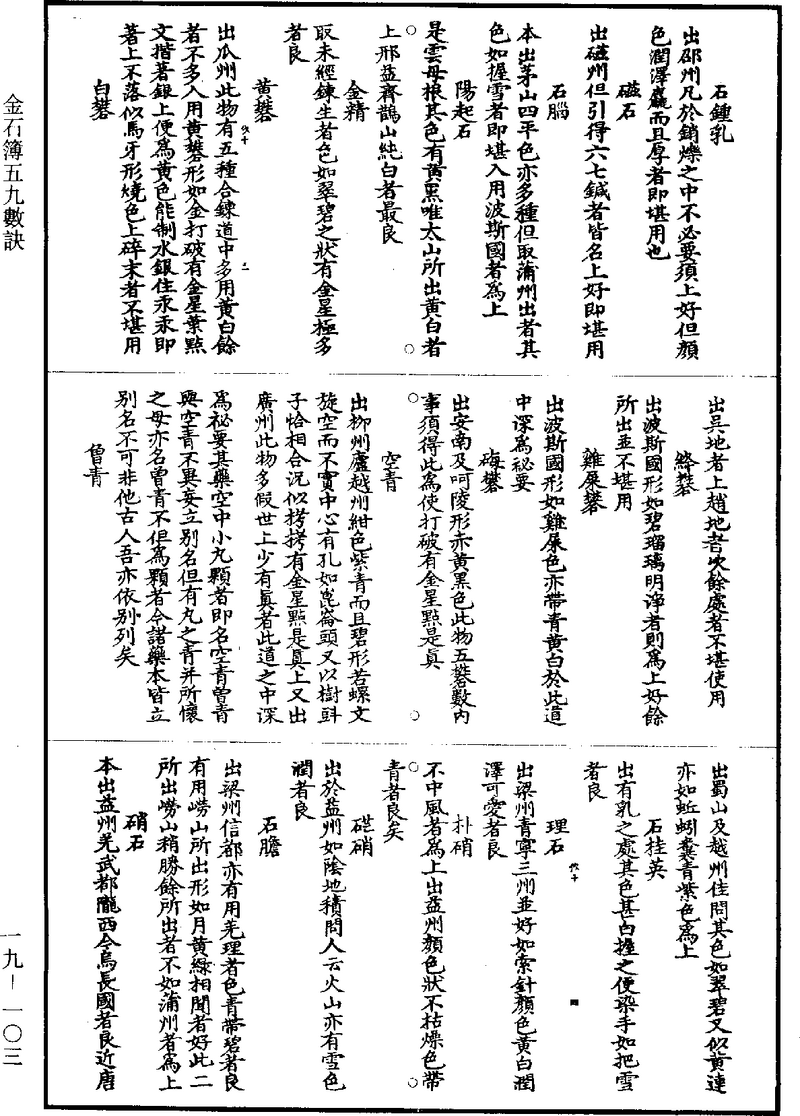 金石簿五九數訣
石鍾乳
出邵州凡於銷爍之中不必要須上好但顏
色潤澤麤而且厚者即堪用也
磁石
出磁州但引得六七鍼者皆名上好即堪用
石腦
本出茅山四平色亦多種但取蒲州出者其
色如握雪者即堪入用波斯國者爲上
陽起石
是雲母根其色有黄黑唯太山所出黄白者
上邢益齊鵲山純白者最良
金精
取未經鍊生者色如翠碧之狀有金星極多
者良
黄礬
出瓜州此物有五種合鍊道中多用黄白餘
者不多入用黄礬形如金打破有金星葉點
文揩著銀上便爲黄色能制水銀住汞汞即
著上不落似馬牙形燒色上碎末者不堪用
白礬
出吳地者上趙地者次餘處者不堪使用
絳礬
出波斯國形如碧瑠璃明淨者則爲上好餘
所出並不堪用
雞屎礬
出波斯國形如雞屎色亦帶青黄白於此道
中深爲祕要
礬
出安南及呵陵形亦黄黑色此物五礬數内
事須得此爲使打破有金星點是真
空青
出柳州廬越州紺色紫青而且碧形若螺文
旋空而不實中心有孔如崑崙頭又以樹㪷
子恰相合況似栲栲有金星點是眞上又出
廣州此物多假世上少有眞者此道之中深
爲祕要其藥空中小丸顆者即名空青曽青
與空青不異妄立别名但有丸之青并所懷
之母亦名曽青不但爲顆者今諸藥本皆立
别名不可非他古人吾亦依别列矣
曽青
出蜀山及越州佳問其色如翠碧又似黄連
亦如蚯蚓糞青紫色爲上
石桂英
出有乳之處其色甚白握之便染手如把雪
者良
理石
出梁州青寧三州並好如索針顏色黄白潤
澤可愛者良
朴硝
不中風者爲上出益州顏色狀不枯燥色帶
青者良矣
硝
出於益州如陰地積問人云火山亦有雪色
潤者良
石膽
出梁州信都亦有用羌理者色青帶碧者良
有用嶗山所出形如月黄綠相間者好此二
所出嶗山稍勝餘所出者不如蒲州者爲上
硝石
本出益州羌武都隴西今烏長國者良近唐
一九－一〇三